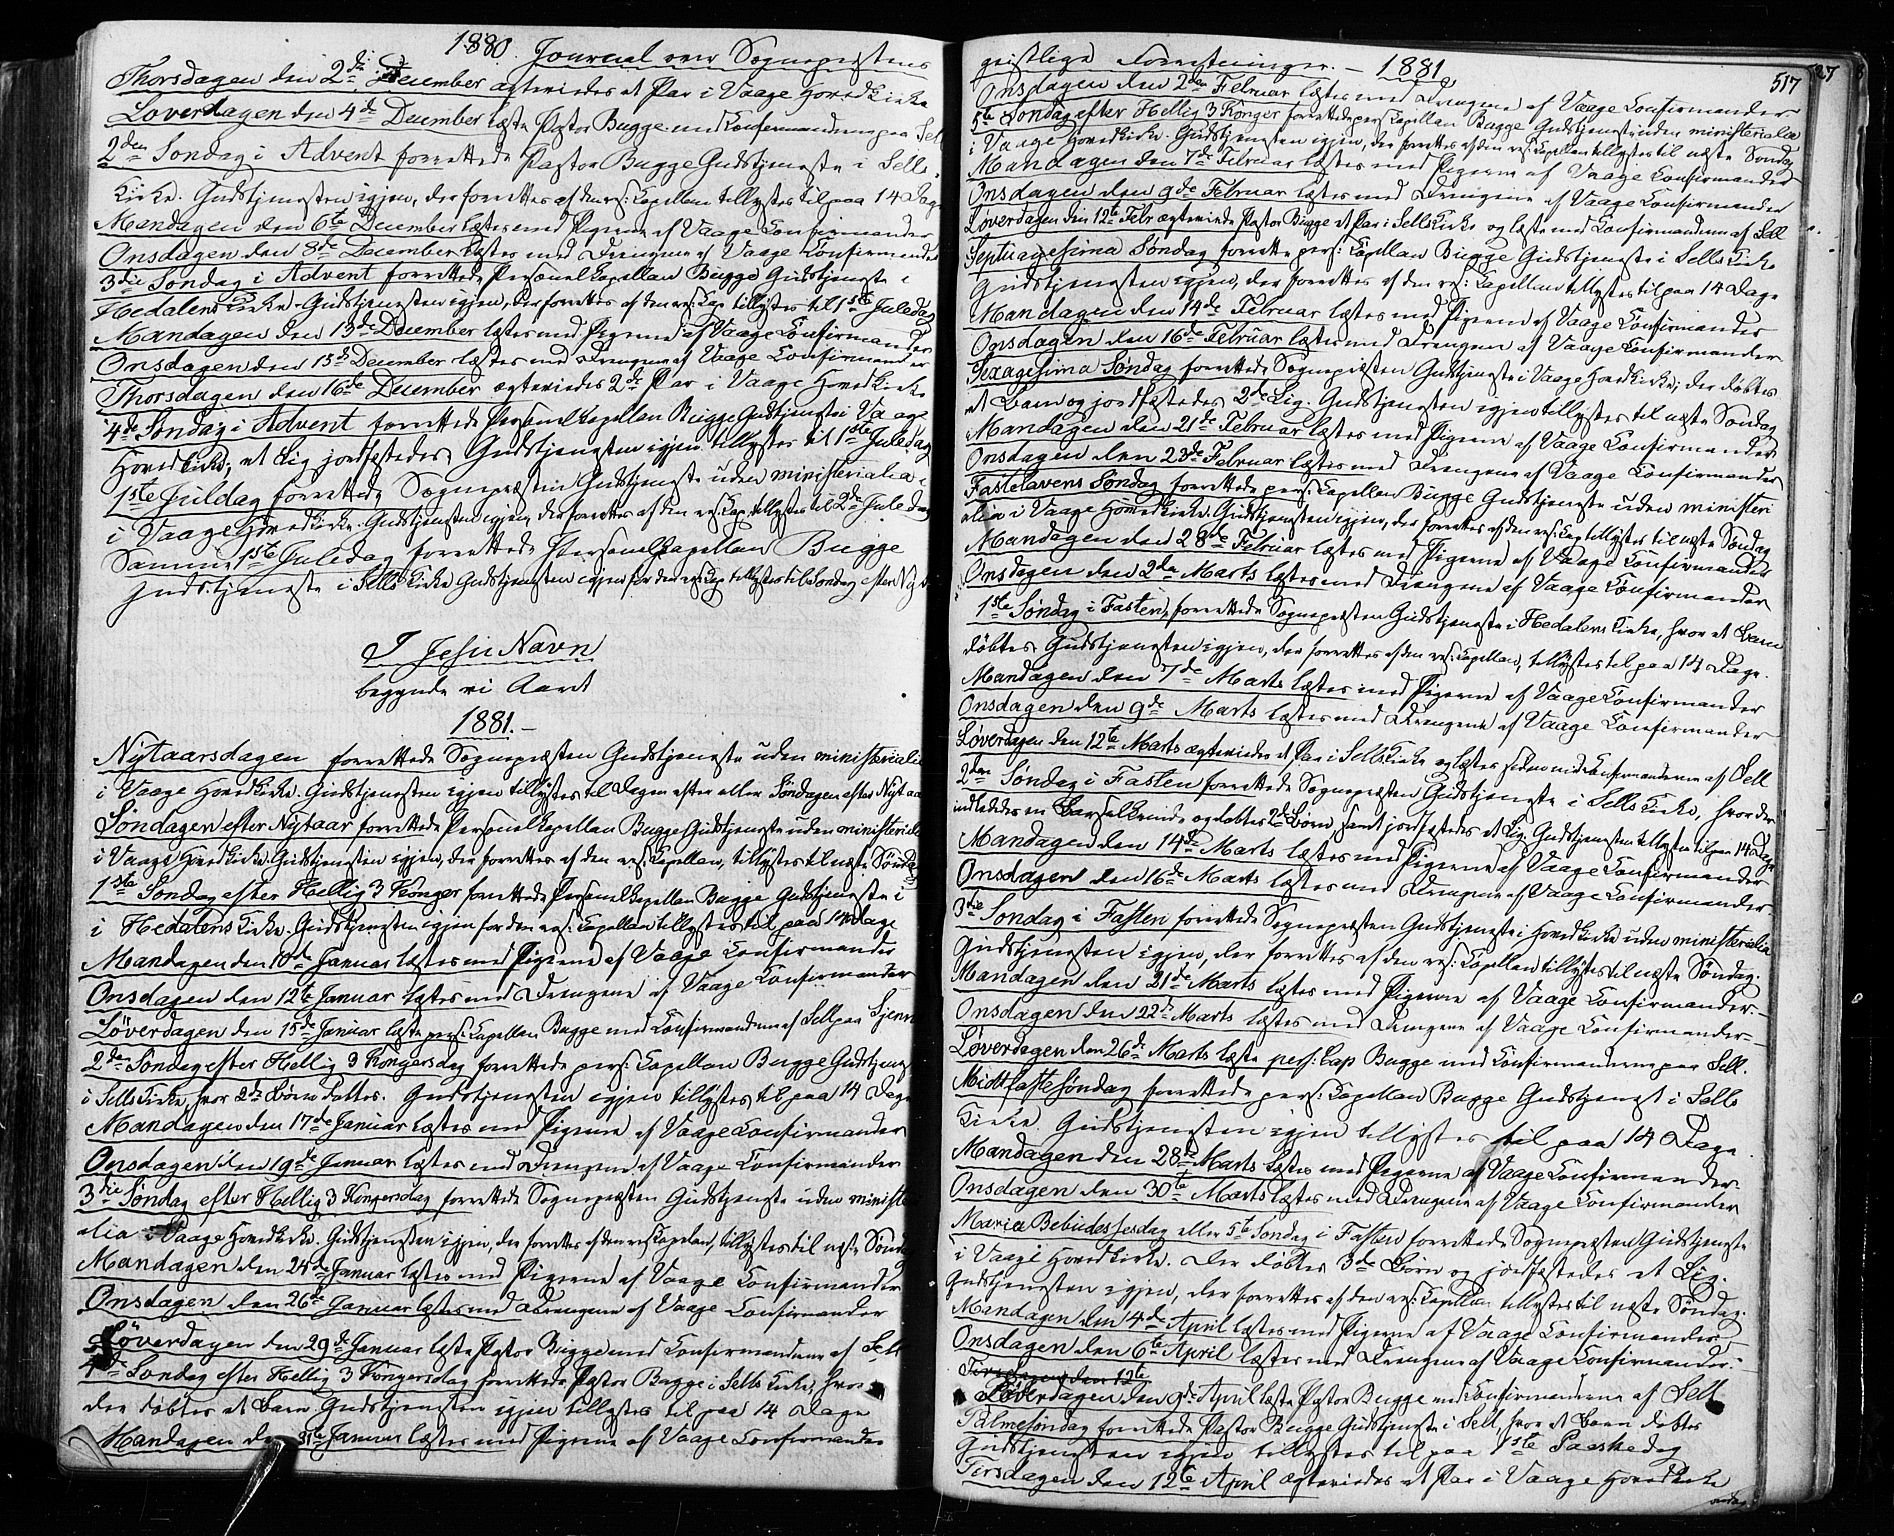 1880. Journal over Sognepræstens
Thorsdagen den 2de December egteviedes et Par i Vaage Hovedkirke
Løverdagen den 4de December læste Pastor Bugge med Confirmanderne paa Sell
2den Søndag i Advent forrettede Pastor Bugge Gudstjeneste i Sells
Kirke. Gudstjenesten igjen, der forrettes af den res: Capellan tillystes til paa 14 Dage
Mandagen den 6te December læstes med Pigerne af Vaage Confirmander
Onsdagen den 8de December læstes med Drengene af Vaage Confirmander
3die Søndag i Advent forrettede Personelkapellan Bugge Gudstjeneste i
Hedalens Kirke. Gudstjenesten igjen, der forrettes af den res: Cap tillystes til 1ste Juledag
Mandagen den 13de December læstes med Pigerne af Vaage Confirmander
Onsdagen den 15de December læstes med Drengene af Vaage Confirmander
Thorsdagen den 16de December egteviedes 2de Par i Vaage Hovedkirke
4de Søndag i Advent forrettede Personelkapellan Bugge Gudstjeneste i Vaage
Hovedkirke, et Lig jordfæstedes. Gudstjenesten igjen tillystes til 1ste Juledag
1ste Juledag forrettede Sognepræsten Gudstjeneste uden ministerialia
i Vaage Hovedkirke. Gudstjenesten igjen, der forrettes af den res. Cap. tillystes til 2den Juledag
Samme 1ste Juledag forrettede Personelkapellan Bugge
Gudstjeneste i Sells Kirke Gudstjenesten igjen for den res Cap tillystes til Søndag efter Nyt
I Jesu Navn
begynde vi Aaret
1881.-
Nytaarsdagen forrettede Sognepræsten Gudstjeneste uden ministerialia
i Vaage Hovedkirke. Gudstjenesten igjen tillystes til Dagen efter eller Søndagen efter Nytaar
Søndagen efter Nytaar forrettede Personelkapellan Bugge Gudstjeneste uden ministerialia
i Vaage Hovedkirke. Gudstjenesten igjen, der forrettes af den res: Capellan, tillystes til næste Søndag
1ste Søndag efter Hellig 3 Konger forrettede Personelkapellan Bugge Gudstjeneste i
i Hedalens Kirke. Gudstjenesten igjen for den res: Capellan tillystes til paa 14 Dage
Mandagen den 10de Januar læstes med Pigerne af Vaage Confirmander
Onsdagen den 12te Januar læstes med Drengene af Vaage Confirmander
Løverdagen den 15de Januar læste pers: Capellan Bugge med Confirmanderne af Sell paa
2den Søndag efter Hellig 3 Kongersdag forrettede pers: Capellan Bugge Gudstjeneste
i Sells Kirke, hvor 2de Børn døbtes. Gudstjenesten igjen tillystes til paa 14 Dage
Mandagen den 17de Januar læstes med Pigerne af Vaage Confirmander
Onsdagen den 19de Januar læstes med Drengene af Vaage Confirmander
3die Søndag efter Hellig 3 Kongersdag forrettede Sognepræsten Gudstjeneste uden ministeri
alia i Vaage Hovedkirke. Gudstjenesten igjen, der forrettes af den res Capelan, tillystes til næste Søndag
Mandagen den 24de Januar læstes med Pigerne af Vaage Confirmander
Onsdagen den 26de Januar læstes med Drengene af Vaage Confirmander
Løverdagen den 29de Januar læste Pastor Bugge med Confirmanderne af Sell
4de Søndag efter Hellig 3 Kongersdag forrettede Pastor Bugge i Sells Kirke, hvor
der døbtes et Barn. Gudstjenesten igjen tillystes til paa 14 Dage
Mandagen den 31te Januar læstes med Pigerne af Vaage Confirmander
geistlige Forretninger. - 1881
517
Onsdagen den 2den Februar læstes med Drengene af Vaage Confirmander
5te Søndag efter Hellig 3 Konger forrettede pers: Capellan Bugge Gudstjeneste uden ministerialia
i Vaage Hovedkirke. Gudstjenesten igjen, der forrettes af den res. Capellan tillystes til næste Søndag
Mandagen den 7de Februar læstes med Pigerne af Vaage Confirmander
Onsdagen den 9de Februar læstes med Drengene af Vaage Confirmander
Løverdagen den 12te Febr egteviede Pastor Bugge et Par i Sells Kirke og læste med Confirmanderne af Sell
Septuagesima Søndag forrettede pers: Capellan Bugge Gudstjeneste i Sells Kirke
Gudstjenesten igjen, der forrettes af den res: Capellan tillystes til paa 14 Dage
Mandagen den 14de Februar læstes med Pigerne af Vaage Confirmander
Onsdagen den 16de Februar læstes med Drengene af Vaage Confirmander
Sexagesima Søndag forrettede Sognepræsten Gudstjeneste i Vaage Hovedkirke, der døbtes
et Barn og jordfæstedes 2de Lig. Gudstjenesten igjen tillystes til næste Søndag
Mandagen den 21de Februar læstes med Pigerne af Vaage Confirmander
Onsdagen den 23de Februar læstes med Drengene af Vaage Confirmander
Fastelavens Søndag forrettede pers: Capellan Bugge Gudstjeneste uden ministeri
alia i Vaage Hovedkirke. Gudstjenesten igjen, der forrettes af den res: Cap tillystes til næste Søndag
Mandagen den 28de Februar læstes med Pigerne af Vaage Confirmander
Onsdagen den 2den Marts læstes med Drengene af Vaage Confirmander
1ste Søndag i Fasten, forrettede Sognepræsten Gudstjeneste i Hedalens Kirke, hvor et Barn
døbtes. Gudstjenesten igjen, der forrettes af den res: Capellan, tillystes til paa 14 Dage.
Mandagen den 7de Marts læstes med Pigerne af Vaage Confirmander
Onsdagen den 9de Marts læstes med Drengene af Vaage Confirmander
Løverdagen den 12te Marts egteviedes et Par i Sells Kirke og læstes siden med Confirmanderne af Sell
2den Søndag i Fasten forrettede Sognepræsten Gudstjeneste i Sells Kirke, hvor der
indlededes en Barselkvinde og døbtes 2de Børn, samt jordfæstedes et Lig. Gudstjenesten tillystes til paa 14 Dage
Mandagen den 14de Marts læstes med Pigerne af Vaage Confirmander
Onsdagen den 16de Marts læstes med Drengene af Vaage Confirmander.
3die Søndag i Fasten forrettede Sognepræsten Gudstjeneste i Hovedkirke uden ministerialia
Gudstjenesten igjen, der forrettes af den res: Capellan tillystes til næste Søndag.
Mandagen den 21de Marts læstes med Pigerne af Vaage Confirmander.-
Onsdagen den 22de Marts læstes med Drengene af Vaage Confirmander-
Løverdagen den 26de Marts læste pers: Cap Bugge med Confirmanderne paa Sell.
Midtfastesøndag forrettede pers: Capellan Bugge Gudstjenest i Sells
Kirke. Gudstjenesten igjen tillystes til paa 14 Dage.
Mandagen den 28de Marts læstes med Pigerne af Vaage Confirmander.
Onsdagen den 30te Marts læstes med Drengene af Vaage Confirmander
Mariæ Bebudelsesdag eller 5te Søndag i Fasten forrettede Sognepræsten Gudstjeneste
i Vaage Hovedkirke. Der døbtes 3de Børn og jordfæstedes et Lig.
Gudstjenesten igjen, der forrettes af den res: Capellan tillystes til næste Søndag.
Mandagen den 4de April læstes med Pigerne af Vaage Confirmander
Onsdagen den 6te April læstes med Drengene af Vaage Confirmander.-
Tirsdagen den 12te
Løverdagen den 9de April læste Pastor Bugge med Confirmanderne af Sell
Palmesøndag forrettede Pastor Bugge Gudstjeneste i Sell, hvor et Barn døbtes
Gudstjenesten igjen tillystes til paa 1ste Paaskedag
Tirsdagen den 12te April egteviedes et Par i Vaage Hovedkirke